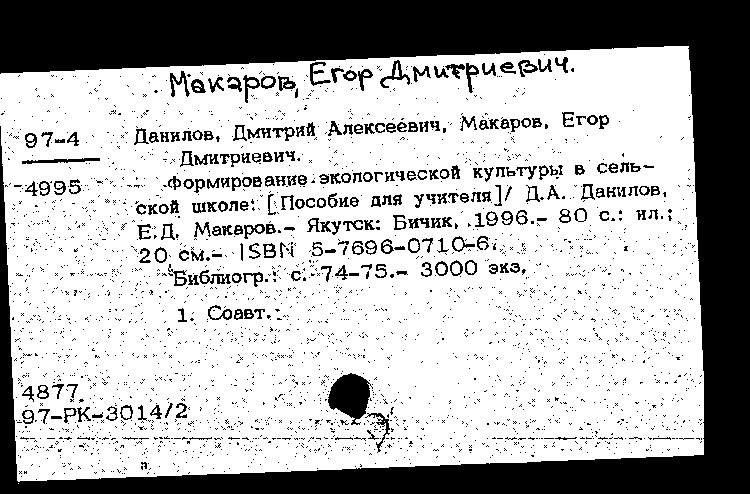 Макаров, Егор Дмитриевич.
97-4
Данилов, Дмитрий Алексеевич, Макаров, Егор
Дмитриевич.
4995
Формирование экологической культуры в сель-
ской школе: [Пособие для учителя]/ Д.А. Данилов,
Е.Д. Макаров.- Якутск: Бичик, 1996.- 80 с.: ил.;
20 см.- ISBN 5-7696-0710-6.
Библиогр.: с. 74-75.- 3000 экз.
1. Соавт.:
4877.
97-РК-3014/2
п